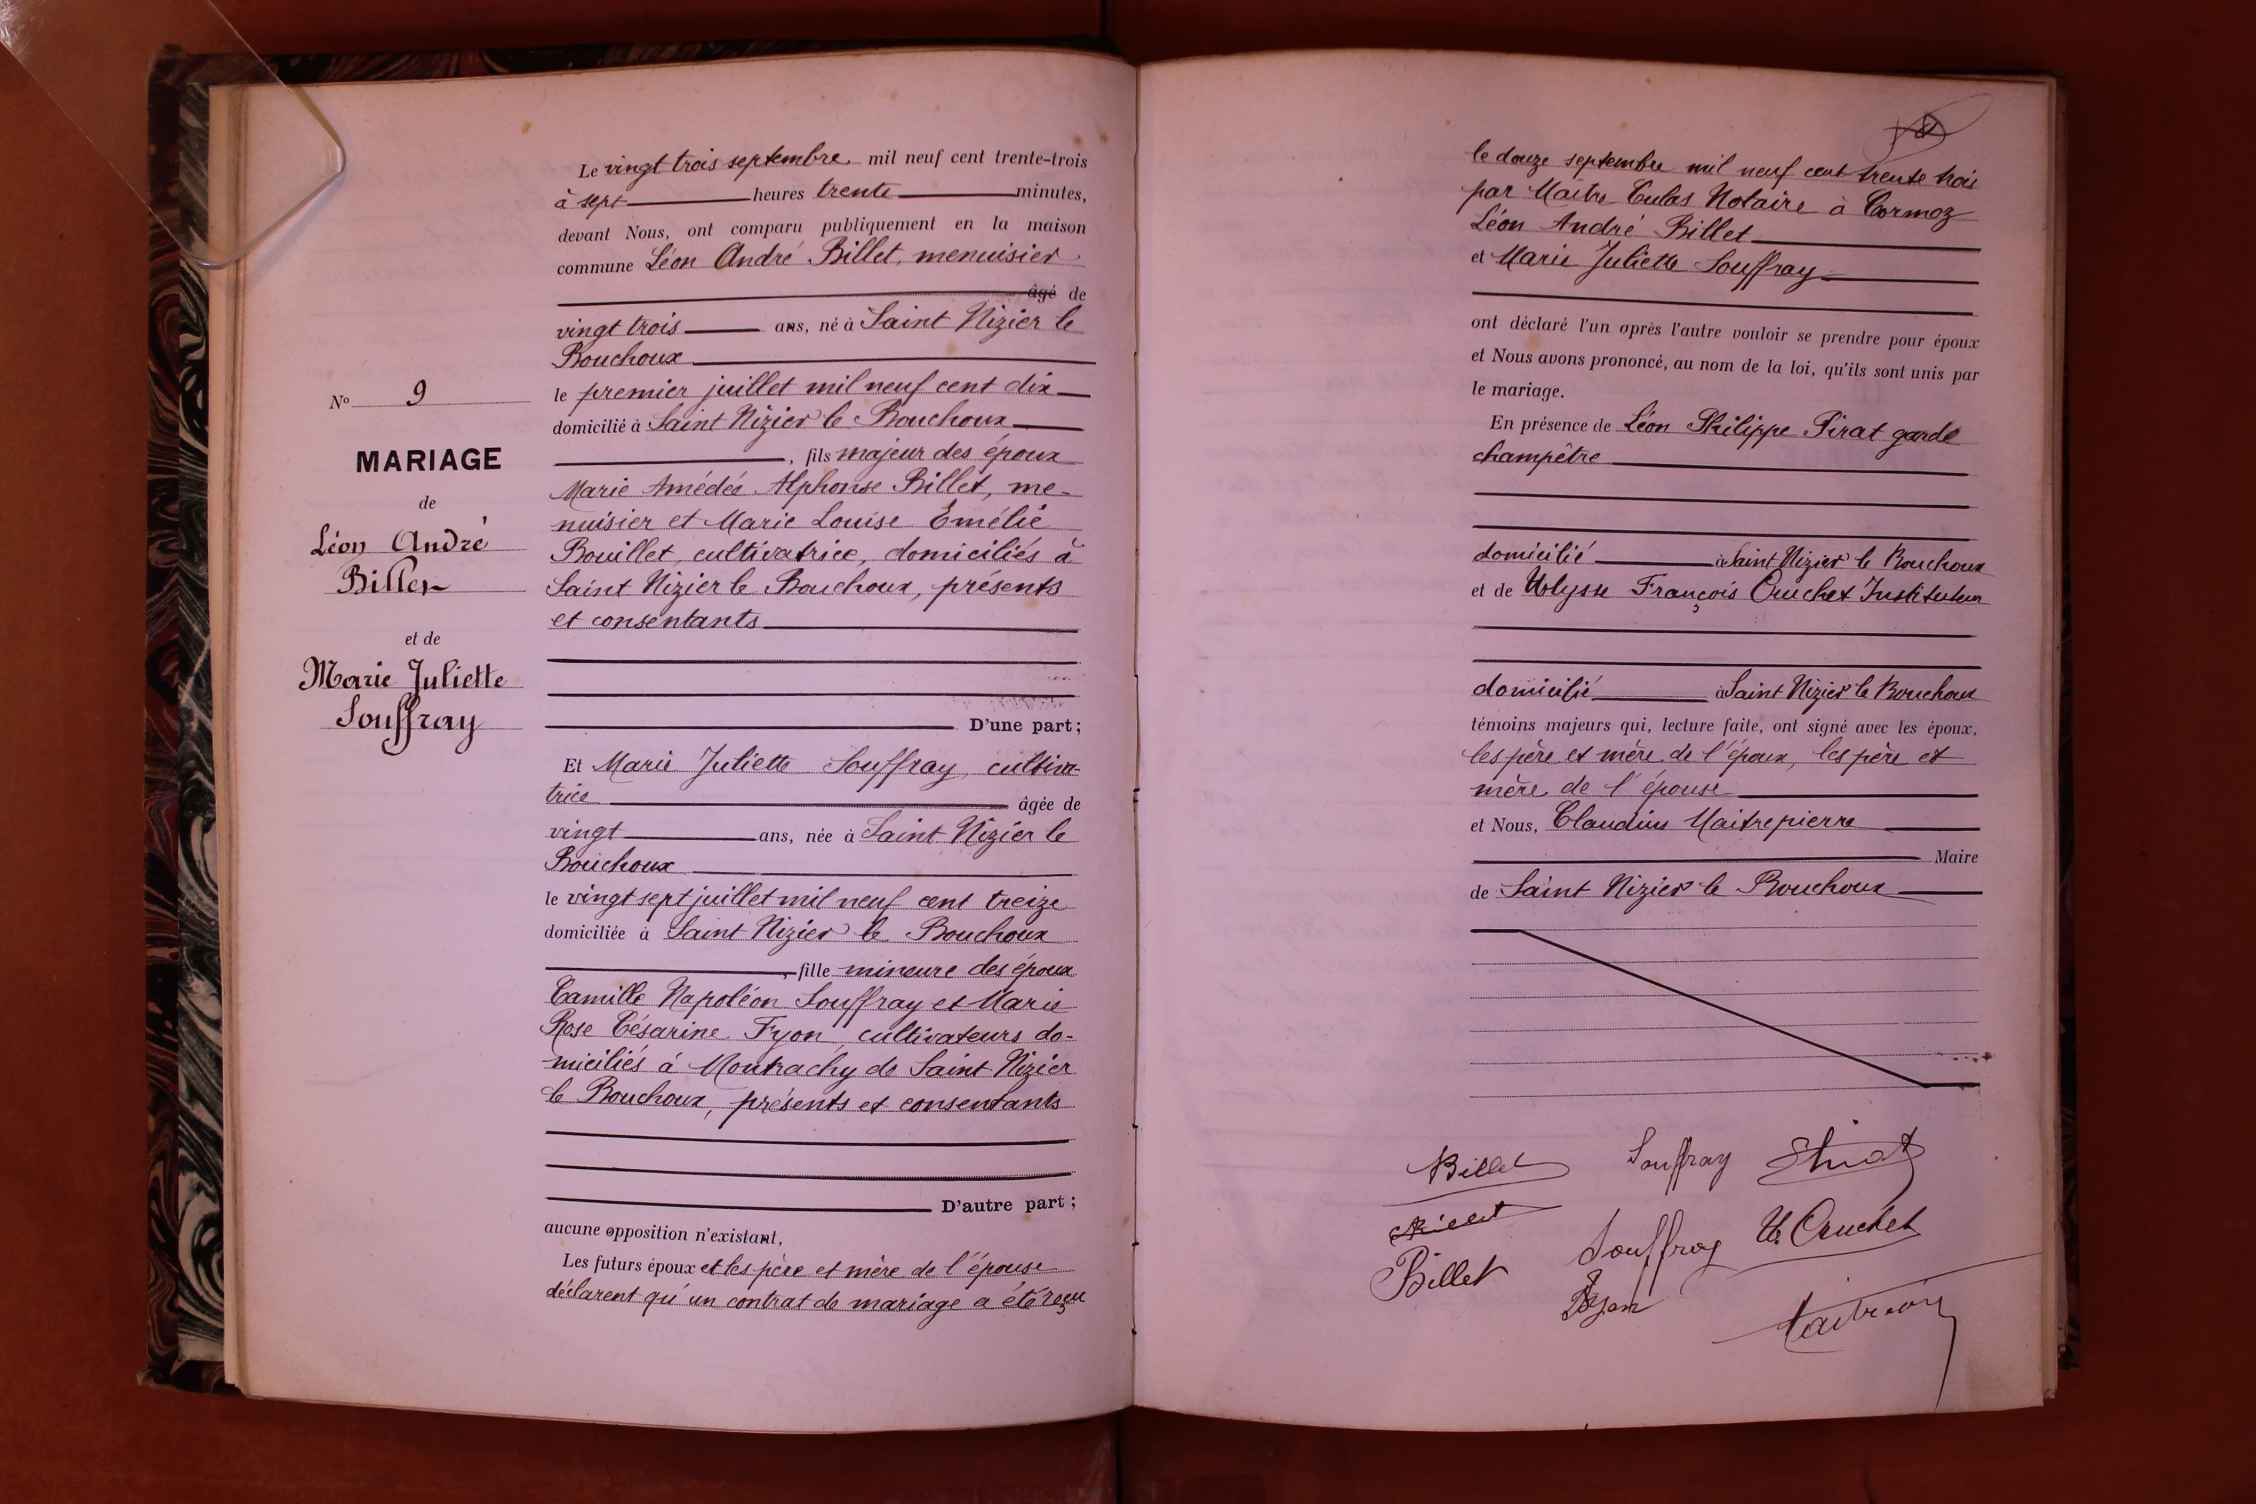 Le vingt trois septembre mil neuf cent trente-trois
à sept heures trente minutes,
devant Nous, ont comparu publiquement en la maison
commune Léon André Billet, menuisier
âgé de
vingt trois ans, né à Saint Nizier le
Bouchoux
le premier juillet mil neuf cent dix
domicilié à Saint Nizier le Bouchoux
, fils majeur des époux
Marie Amédée Alphonse Billet, me-
nuisier et Marie Louise Emélie
Bouillet, cultivatrice, domiciliés à
Saint Nizier le Bouchoux, présents
et consentants
D'une part;
No 9
MARIAGE
de
Léon André
Billet
et de
Marie Juliette
Souffray
Et Marie Juliette Souffray, cultiva-
trice âgée de
vingt ans, née à Saint Nizier le
Bouchoux
le vingt sept juillet mil neuf cent treize
domiciliée à Saint Nizier le Bouchoux
, fille mineure des époux
Camille Napoléon Souffray et Marie
Rose Césarine Fyon, cultivateurs do-
miciliés à Montrachy de Saint Nizier
le Bouchoux, présents et consentants
D'autre part;
aucune opposition n'existant,
Les futurs époux et les père et mère de l'épouse
déclarent qu'un contrat de mariage a été reçu
le douze septembre mil neuf cent trente trois
par Maître Culas Notaire à Cormoz
Léon André Billet
et Marie Juliette Souffray
ont déclaré l'un après l'autre vouloir se prendre pour époux
et Nous avons prononcé, au nom de la loi, qu'ils sont unis par
le mariage.
En présence de Léon Philippe Pirat garde
champêtre
domicilié à Saint Nizier le Bouchoux
et de Ulysse François Cruchet Instituteur
domicilié à Saint Nizier le Bouchoux
témoins majeurs qui, lecture faite, ont signé avec les époux,
les père et mère de l'époux, les père et
mère de l'épouse
et Nous, Claudius Maitrepierre
Maire
de Saint Nizier le Bouchoux
Billet Souffray
Billet
Souffray U. Cruchet
Billet